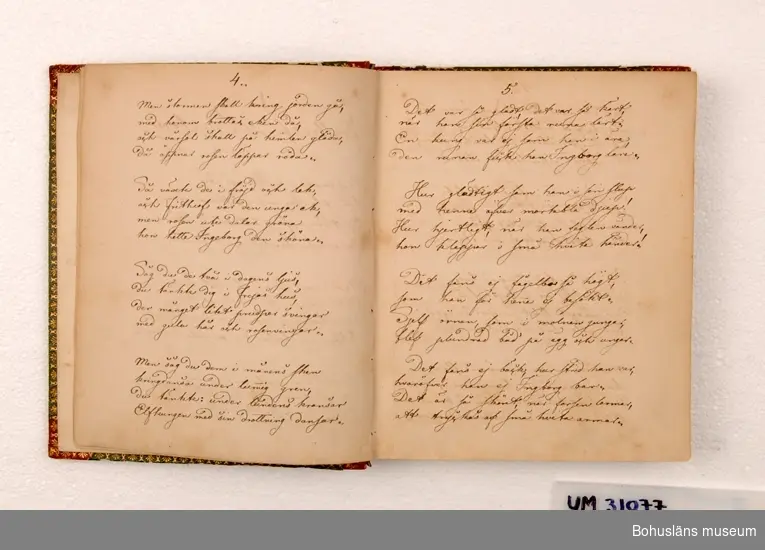 4.
Men stormen skall kring jorden gå,
med hårens trollas Men då,
och vårsol skall på himlen glöda,
Då öppnar rosen läppar röda.
Så växte de i fröjd och lek,
och Frithiof var den unga ek,
men rosen uti dalar gröna
hon hette Ingeborg den sköna.
Såg du de två i dagens ljus,
du tänkte dig i Frejas hus,
der månget litet brudpar svingar
med gula hår och rosenvingar.
Men såg du dem i månens sken
kringdansa under lummig gren,
du tänkte: under lundens kransar
Elfkungen med sin drottning dansar.
5.
Det var så gladt, det var så kärt,
när han sin första runa lärt;
En kung var ej som han i ära,
den runan fick han Ingborg lära.
Hur glädtigt sam han i sin slup
med henne öfver mörkblå djup!
Hur hjertligt, när han seglen vänder,
hon klappar i små hvita händer!
Det fans ej fågelbo så högt,
som han för henne ej besökt.
Sjelf örnen som i molnen gungar,
blef plundrad båd' på ägg och ungar.
Det fans ej bäck, hur strid han var,
hvaröfver han ej Ingborg bar.
Det är så skönt när forsen larmar,
att tryckas af små hvita armar.
UM 31077
Bohusläns museum